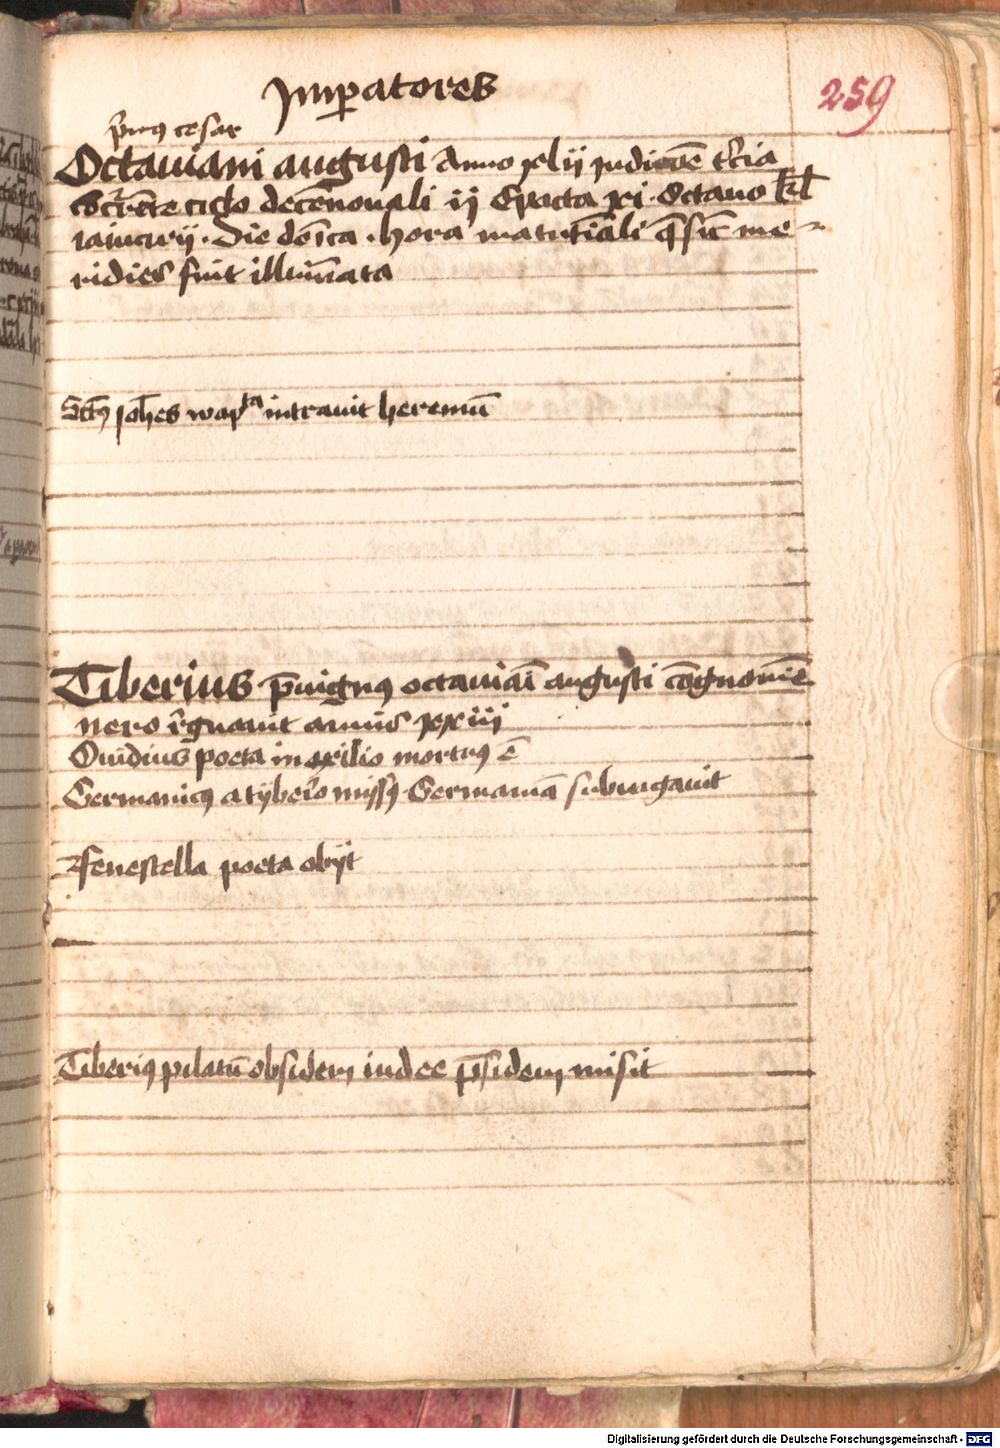 Imꝑatores
259
p̄mꝰ cesar
Octauiani augusti Anno xlii indictiōe t̄cia
ꝯcurrēte ciclo decēnouali ii Epacta xi · Octauo kl
ianuarij · Die dōica · hora matutīali q̄ sic me-
ridies fuit illumīata
Sctꝰ Joh̄es wapᵗᵃ intrauit heremū
Tiberius p̄uignꝰ octauiāi augusti cōgnomīe
nero r̄gnauit annis xxiii
Ouidius poeta in exilio mortuꝰ ē
Germanicꝰ a tyberio missꝰ Germaniā subiugauit
Fenestella poeta obijt
Tiberiꝰ pilatū obsidem iudee p̄sidem misit
Digitalisierung gefördert durch die Deutsche Forschungsgemeinschaft - DFG